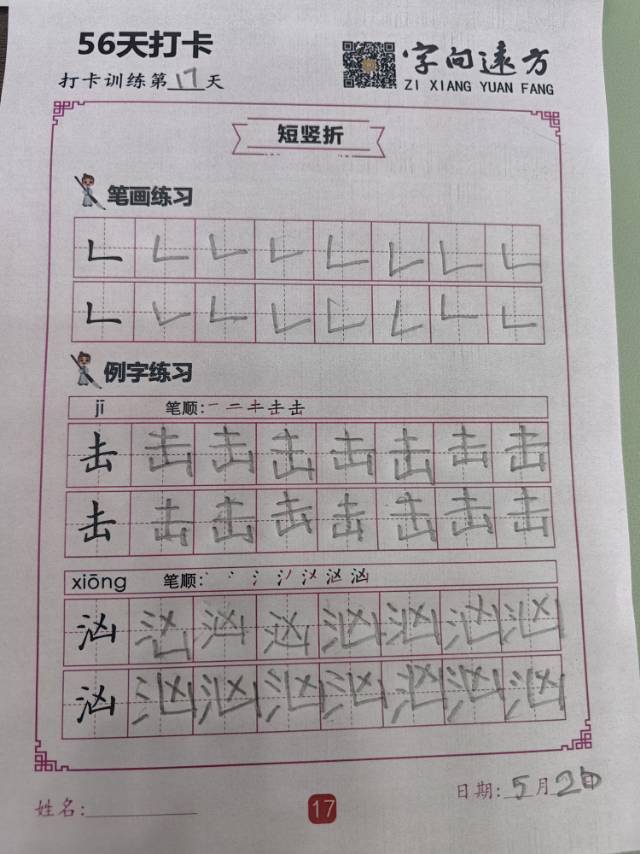 56天打卡
打卡训练第17天
字向远方
ZI XIANG YUAN FANG
短竖折
笔画练习
𠃊 𠃊 𠃊 𠃊 𠃊 𠃊 𠃊 𠃊
𠃊 𠃊 𠃊 𠃊 𠃊 𠃊 𠃊 𠃊
例字练习
jī 笔顺:一 二 キ 击 击
击 击 击 击 击 击 击 击
击 击 击 击 击 击 击 击
xiōng 笔顺:
汹 汹 汹 汹 汹 汹 汹 汹
汹 汹 汹 汹 汹 汹 汹 汹
姓名:
17
日期: 5月